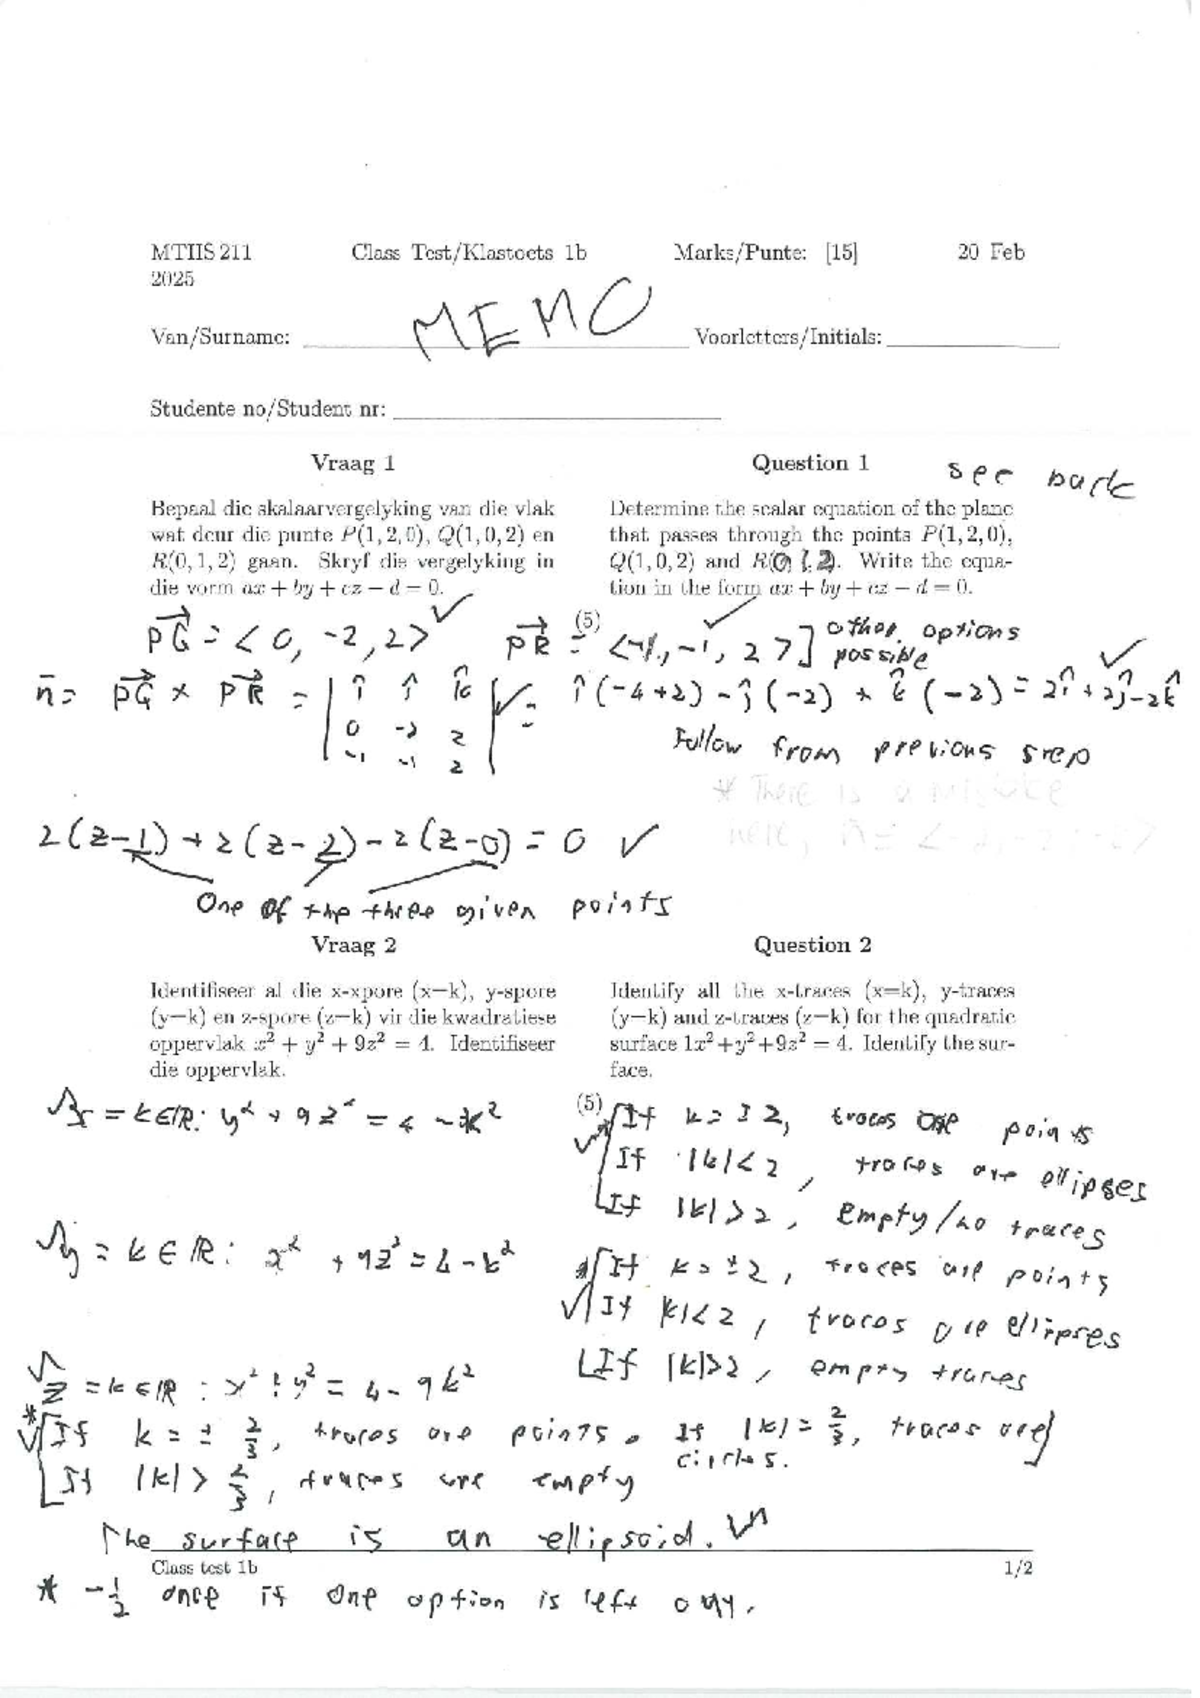 MTHS 211 Class Test/Klastoets 1b Marks/Punte: [15] 20 Feb
2025
Van/Surname: MEMO Voorletters/Initials:
Studente no/Student nr:
Vraag 1
Bepaal die skalaarvergelyking van die vlak
wat deur die punte P(1, 2, 0), Q(1, 0, 2) en
R(0, 1, 2) gaan. Skryf die vergelyking in
die vorm ax + by + cz − d = 0.
Question 1 see back
Determine the scalar equation of the plane
that passes through the points P(1, 2, 0),
Q(1, 0, 2) and R(0, 1, 2). Write the equa-
tion in the form ax + by + cz − d = 0.
(5)
PQ = < 0, -2, 2> ✓ PR = <-1, -1, 2 >] ✓ other options
possible
n̄ = PQ × PR = | î ĵ k̂ | ✓ = î (-4+2) - ĵ (-2) + k̂ (-2) = 2î + 2ĵ - 2k̂ ✓
0 -2 2
-1 -1 2
Follow from previous step
* There is a mistake
here, n̄ = < -2, -2, -2 >
2(z-1) + 2(z-2) - 2(z-0) = 0 ✓
One of the three given points
Vraag 2
Identifiseer al die x-xpore (x=k), y-spore
(y=k) en z-spore (z=k) vir die kwadratiese
oppervlak x² + y² + 9z² = 4. Identifiseer
die oppervlak.
Question 2
Identify all the x-traces (x=k), y-traces
(y=k) and z-traces (z=k) for the quadratic
surface 1x²+y²+9z² = 4. Identify the sur-
face.
(5)
x = k∈ℝ: y² + 9z² = 4 - k²
If k = ±2, traces are points
If |k|<2, traces are ellipses
If |k|>2, empty/no traces
y = k ∈ ℝ: x² + 9z² = 4 - k²
* If k = ±2, traces are points
✓ If |k|<2, traces are ellipses
If |k|>2, empty traces
z = k ∈ ℝ : x² + y² = 4 - 9k²
* ✓ If k = ± 2/3, traces are points. If |k| = 2/3, traces are
circles.
If |k| > 2/3, traces are empty
The surface is an ellipsoid.
Class test 1b 1/2
* -1/2 once if one option is left out.